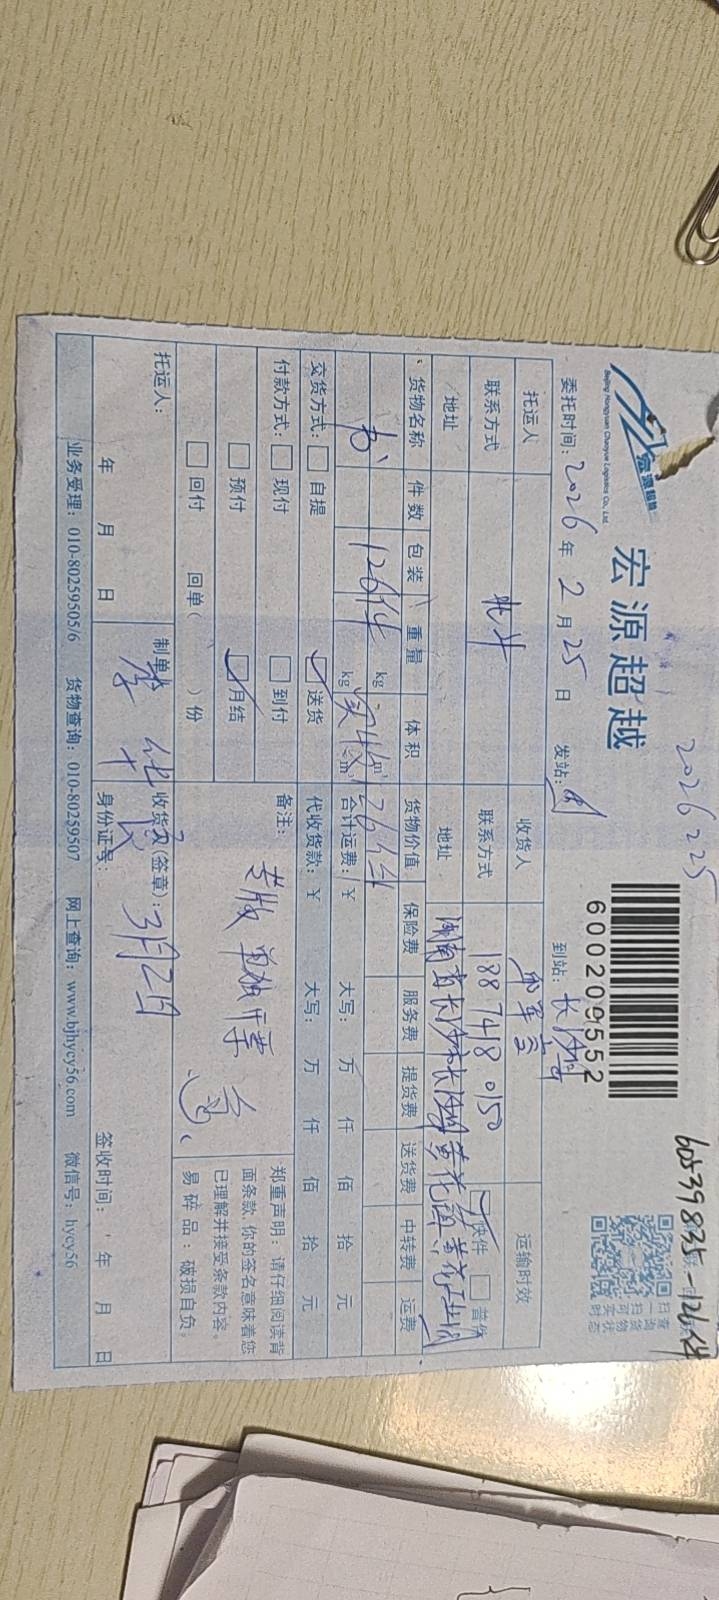 2026 225
60539835-126件
宏源超越
Beijing Hongyuan Chaoyue Logistics Co., Ltd.
宏源超越
600209552
委托时间：2026 年 2 月 25 日 发站： 到站：长沙
托运人 收货人 运输时效
联系方式 北斗 联系方式 188 7418 0150 快件 普件
地址 地址 湖南省长沙市长沙县黄花镇黄花工业园
货物名称 件数 包装 重量 体积 货物价值 保险费 服务费 提货费 送货费 中转费 运费
书 126件 kg m³
kg 实收 m³ 126件 合计运费：¥ 大写： 万 仟 佰 拾 元
交货方式： 自提 送货 代收货款：¥ 大写： 万 仟 佰 拾 元
付款方式： 现付 到付 备注：
预付 月结
回付 回单（ ）份
郑重声明：请仔细阅读背
面条款，你的签名意味着您
已理解并接受条款内容。
易碎品：破损自负。
托运人： 制单人： 收货人(签章)：3月2日
年 月 日 身份证号： 签收时间： 年 月 日
业务受理：010-80259505/6 货物查询：010-80259507 网上查询：www.bjhycy56.com 微信号：hycy56